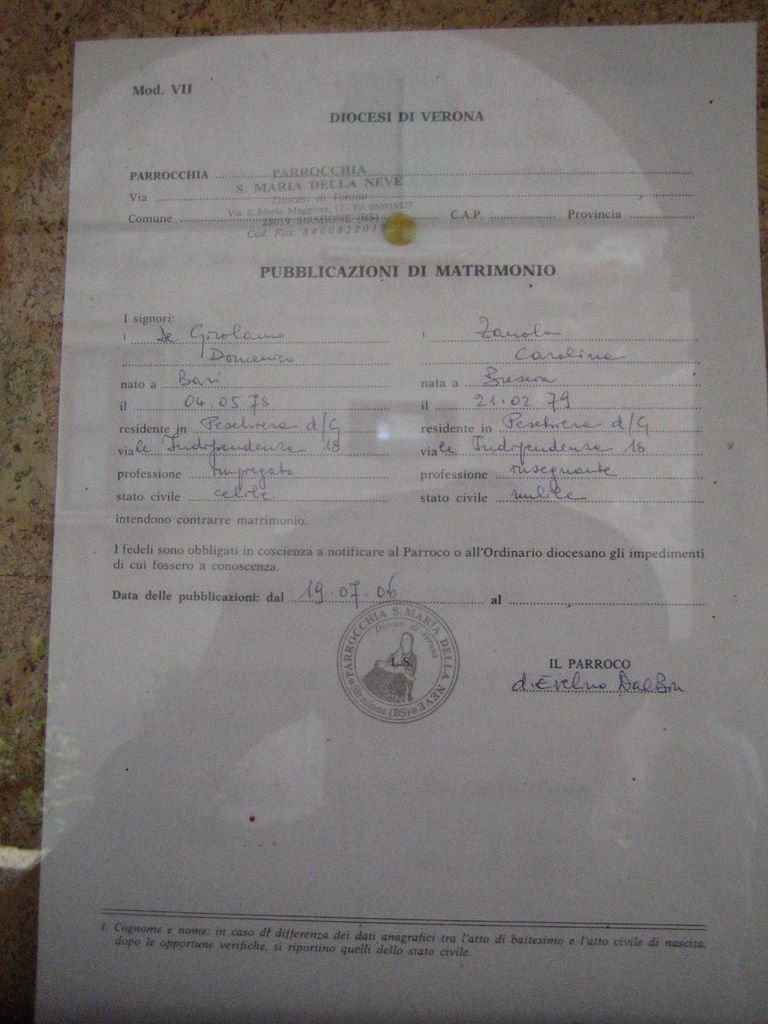 Mod. VII
DIOCESI DI VERONA
PARROCCHIA PARROCCHIA
S. MARIA DELLA NEVE
Via Diocesi di Verona
Via S. Maria Maggiore,
Comune 25019 SIRMIONE (BS) C.A.P. Provincia
Cod. Fisc.
PUBBLICAZIONI DI MATRIMONIO
I signori:
1 De Girolamo 1 Zanola
Domenico Carolina
nato a Bari nata a Brescia
il 04.05.78 il 21.02.79
residente in Peschiera d/G residente in Peschiera d/G
viale Indipendenza 18 viale Indipendenza 18
professione impiegato professione insegnante
stato civile celibe stato civile nubile
intendono contrarre matrimonio.
I fedeli sono obbligati in coscienza a notificare al Parroco o all'Ordinario diocesano gli impedimenti
di cui fossero a conoscenza.
Data delle pubblicazioni: dal 19.07.06 al
PARROCCHIA S. MARIA DELLA NEVE
Diocesi di Verona
L.S.
Sirmione (BS)
IL PARROCO
d. Evelino Dal Bon
1. Cognome e nome: in caso di differenza dei dati anagrafici tra l'atto di battesimo e l'atto civile di nascita,
dopo le opportune verifiche, si riportino quelli dello stato civile.